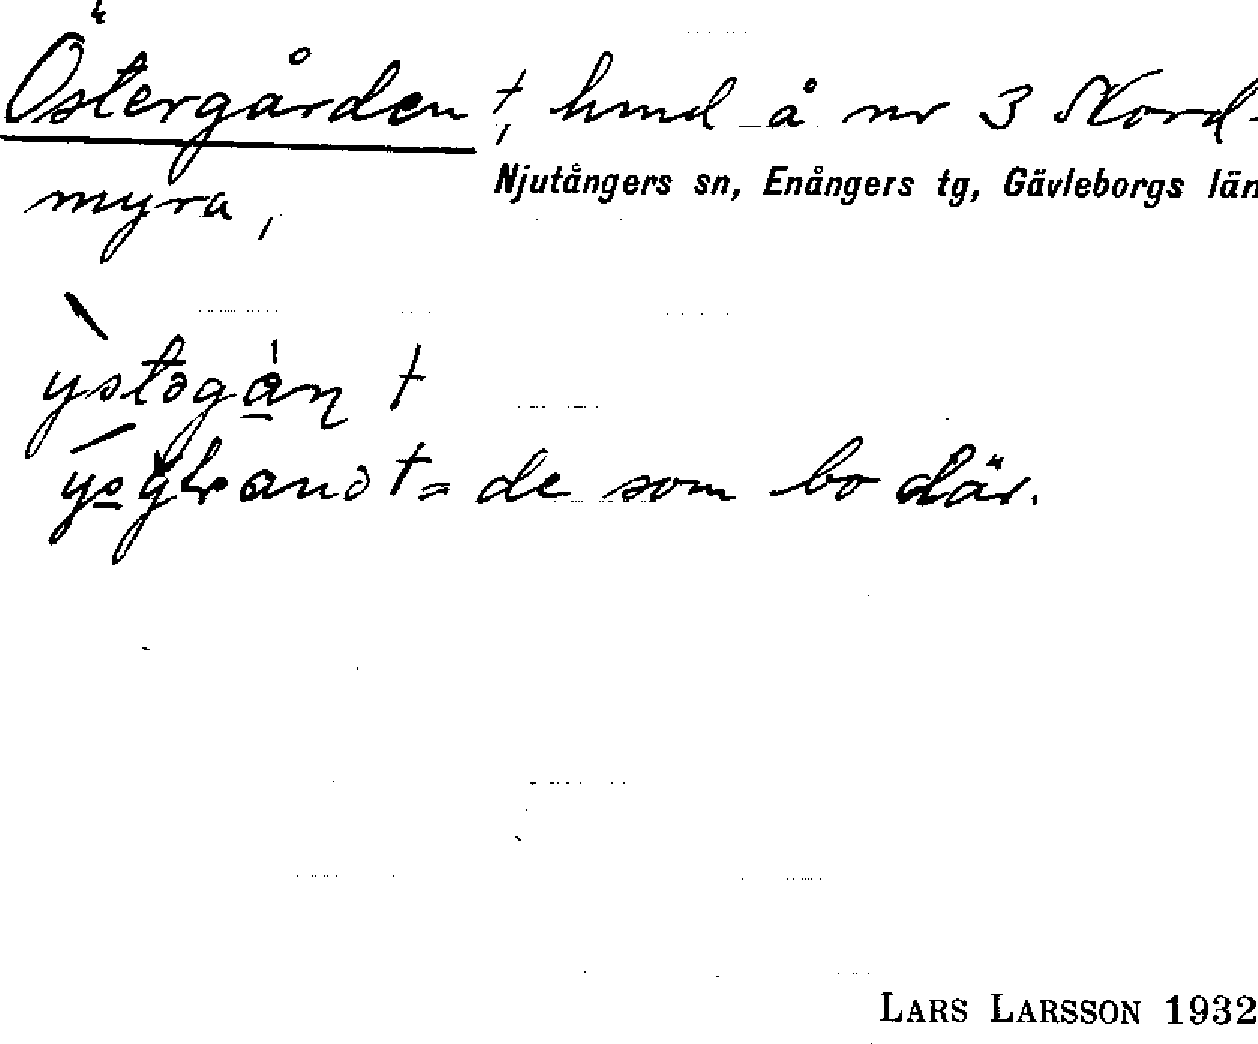 Östergården †, hmd å nr 3 Nord-
Njutångers sn, Enångers tg, Gävleborgs län
myra,
ystəgàṇ †
† = de som bo där.
LARS LARSSON 1932